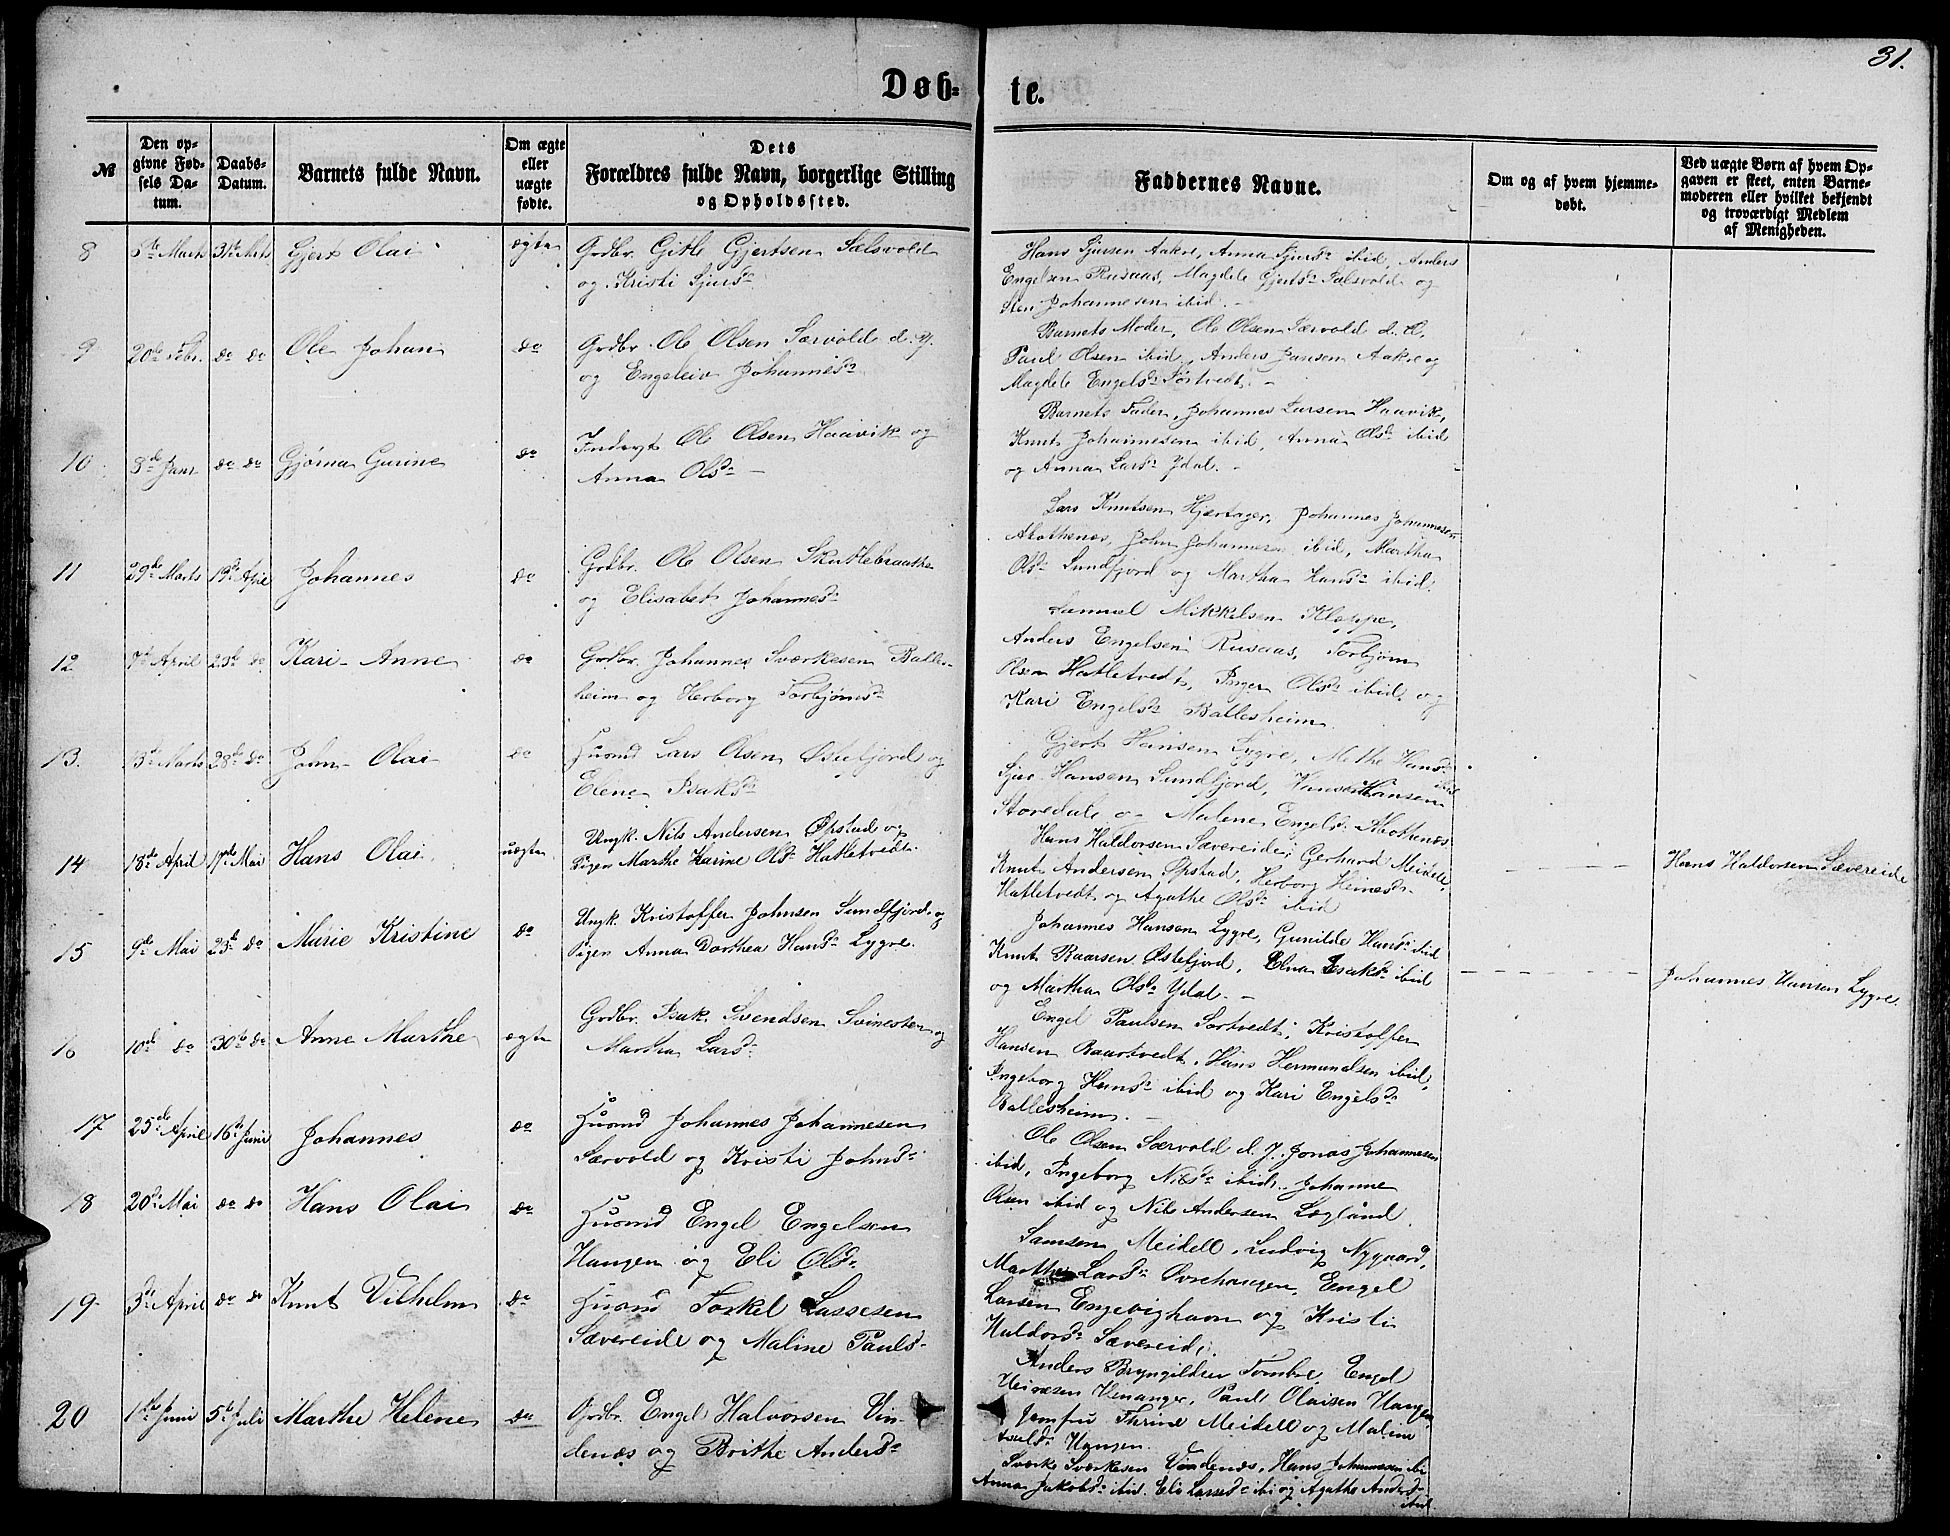 31.
Døb-
te.
№
Den opgivne Fødsels Datum.
Daabs-Datum.
Barnets fulde Navn.
Om ægte eller uægte fødte.
Dets Forældres fulde Navn, borgerlige Stilling og Opholdssted.
Faddernes Navne.
Om og af hvem hjemmedøbt.
Ved uægte Børn af hvem Opgaven er skeet, enten Barnemoderen eller hvilket bekjendt og troværdigt Medlem af Menigheden.
8 Marts 31te Mrts Gjert Olai ægte Grdbr. Gitle Gjertsen Sælsvold
og Kristi Sjursd.
Hans Sjursen Aakre, Anna Sjursd. ibid, Anders
Engelsen Rusaas, Magdele Gjertsd. Sælsvold og
Sten Johannesen ibid.
9 20de Febr. do do Ole Johan do Grdbr. Ole Olsen Særvold d. y.
og Engeleiv Johannesd.
Barnets Moder, Ole Olsen Særvold d. Æ.
Paul Olsen ibid, Anders Jansen Aakre og
Magdele Engelsd. Tørtvedt. -
10 8de Janr do do Gjørna Gurine do Inderst Ole Olsen Haavik og
Anna Olsd. -
Barnets Fader, Johannes Larsen Haavik,
Knut Johannesen ibid, Anna Olsd. ibid
og Anna Larsd. Ydal. -
11 29de Marts 19de April Johannes do Grdbr. Ole Olsen Skutlebraathe
og Elisabet Johannesd.
Lars Knutsen Hjertager, Johannes Johannesen
John Johannesen ibid, Martha
Olsd. Sundfjord og Martha Hansd. ibid.
12 7de April 25de do Kari Anne do Grdbr. Johannes Sværkesen Balles-
heim og Herborg Torbjørnsd.
Samuel Mikkelsen Kloppe,
Anders Engelsen Rusaas, Torbjørn
Olsen Hatletvedt, Inger Olsd. ibid. og
Kari Engelsd. Ballesheim.
13. Marts 28de do John Olai do Husmd Lars Olsen Østefjord og
Elene Isaksd.
Gjert Hansen Lygre, Methe Hansd. ibid
Sjur Hansen Sundfjord, Hans Hansen
Storedale og Malene Engelsd.
14 18de April 17de Mai Hans Olai uægte Ungk. Nils Andersen Øpstad og
Pigen Marthe Karine Olsd. Hatletvedt.
Hans Haldorsen Sævereide, Gerhard Meidell,
Knut Andersen Øpstad, Herborg Heinesd.
Hatletvedt og Agathe Olsd. ibid
Hans Haldorsen Sævereide
15 9de Mai 25de do Marie Kristine do Ungk. Kristoffer Johnsen Sundfjord og
Pigen Anna Dorthea Hansd. Lygre.
Johannes Hansen Lygre, Gunilde Hansd. ibid
Knut Baarsen Østefjord, Elna Isaksd. ibid
og Martha Olsd. Ydal. -
Johannes Hansen Lygre
16 10de do 30te do Anne Marthe ægte Grdbr. Isak Svendsen Svinesten og
Martha Larsd.
Engel Paulsen Tørtvedt, Kristoffer
Hansen Baartvedt, Hans Hermundsen ibid,
Ingeborg Hansd. ibid og Kari Engelsd.
Ballesheim. -
17 25de April 16de Juni Johannes do Husmd Johannes Johannesen
Særvold og Kristi Johnsd.
Ole Olsen Særvold d. Y. Jonas Johannesen
ibid, Ingeborg Nilsd. ibid, Johanne
Olsen ibid og Nils Andersen Løgland.
18 20de Mai do do Hans Olai do Husmd Engel Engelsen
Haugen og Eli Olsd.
Samsen Meidell, Ludvig Nygaard,
Marthe Larsd. Øvrehaugen, Engel
Larsen Engevighavn og Kristi
Haldorsd. Sævereide.
19 3de April do do Knut Vilhelm do Husmd Torkel Lassesen
Sævereide og Maline Paulsd.
Anders Brynjildsen Tombre, Engel
Heinesen Venanger, Paul Olaisen Haugen
Jomfru Thrine Meidell og Maline
Haugen.
20 1ste Juni 5te Juli Marthe Helene do Grdbr. Engel Halvorsen Vin-
denæs og Brithe Andersd.
Sværke Sværkesen Vindenæs, Hans Johannessen ibi
Anna Jakobsd. ibid. Eli Lassesd. ibi og Agathe Andersd.
ibid.